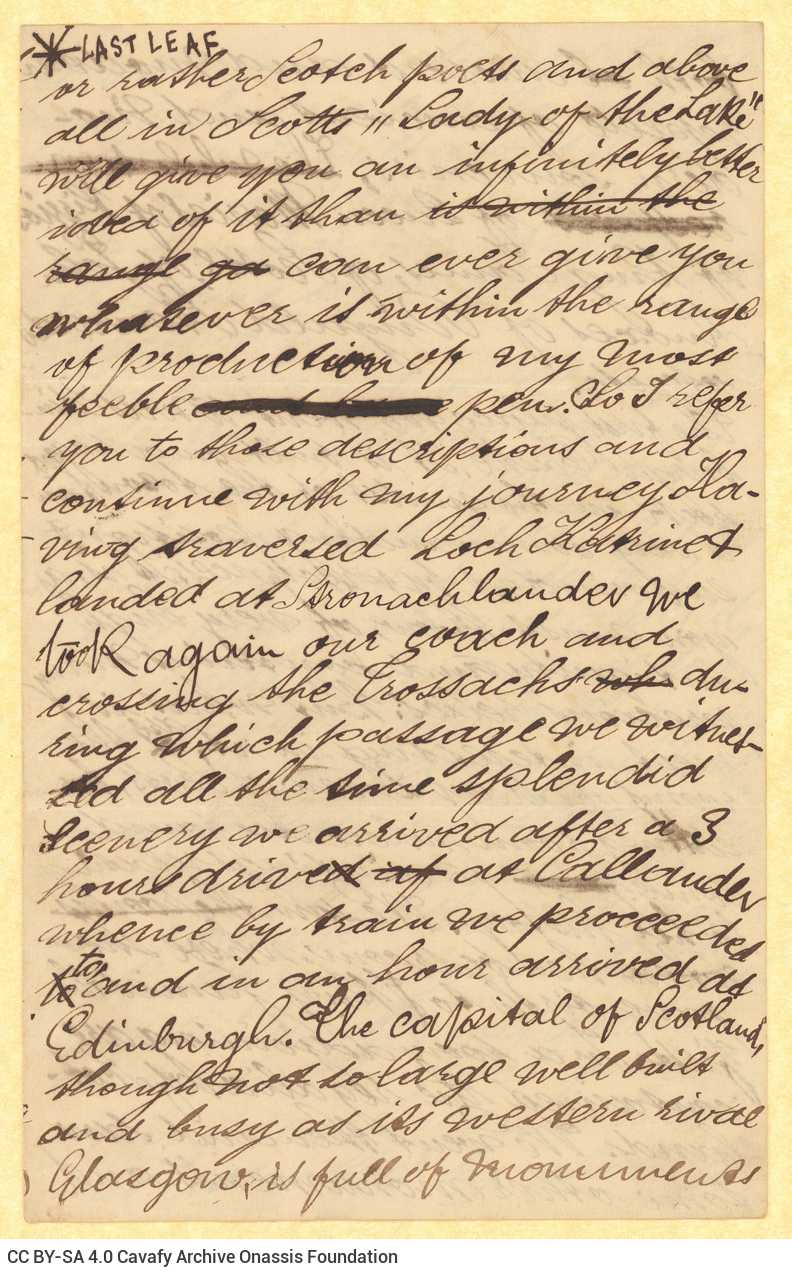 * LAST LEAF
or rather Scotch poets and above
all in Scotts „Lady of the Lake"
will give you an infinitely better
idea of it than is within the
range ga can ever give you
whatever is within the range
of production of my most
feeble pen. So I refer
you to those descriptions and
continue with my journey Ha-
ving traversed Loch Katrine &
landed at Stronachlander we
took again our coach and
crossing the Trossachs wh du-
ring which passage we witnes-
sed all the time splendid
scenery we arrived after a 3
hours drived af at Callander
whence by train we proceeded
to, and in an hour arrived at
Edinburgh. The capital of Scotland,
though not so large well built
and busy as its western rival
Glasgow, is full of monuments
CC BY-SA 4.0 Cavafy Archive Onassis Foundation